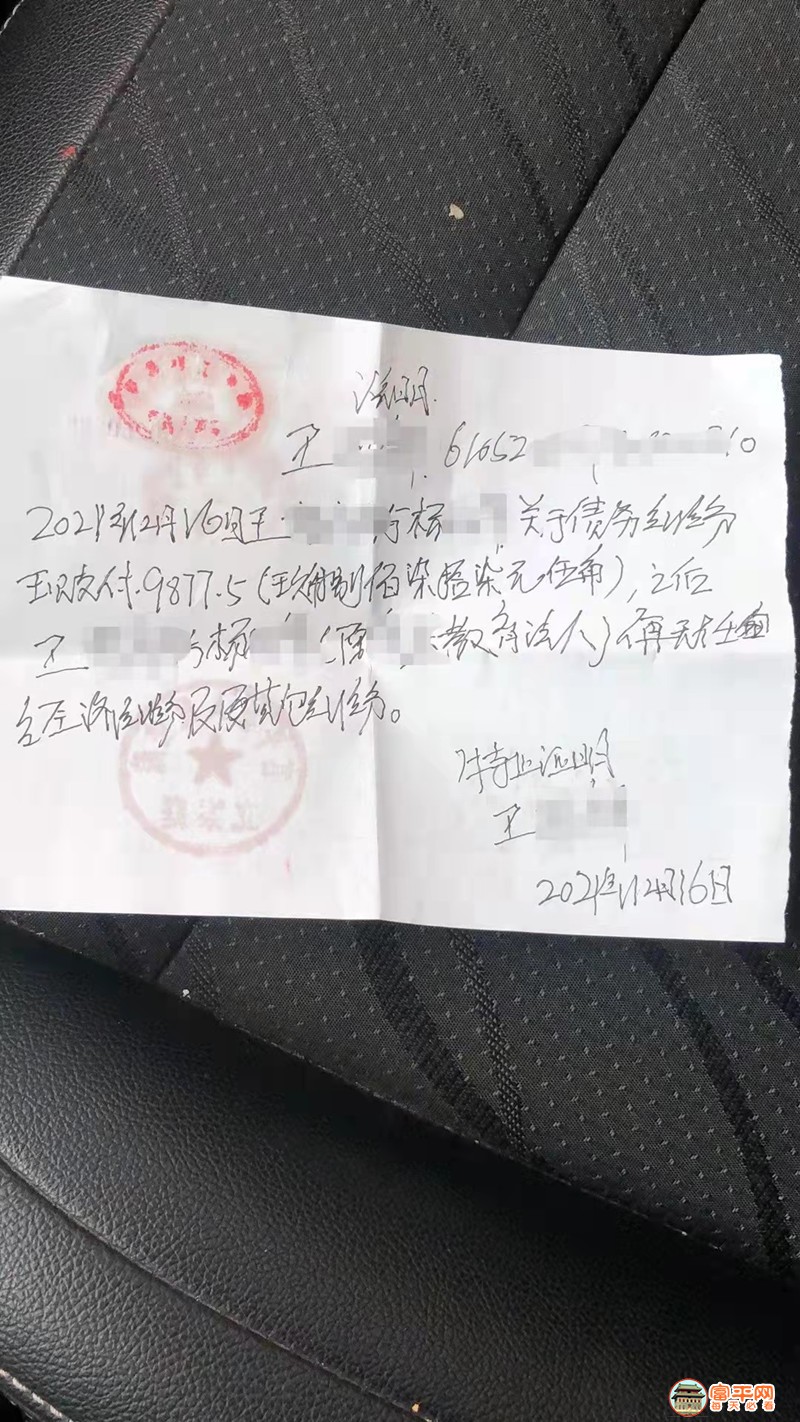 说明
王 61052 0
2021年12月16日王 与杨 关于债务纠纷
王 支付 9877.5 ( 捌佰柒拾柒元伍角),之后
王 与杨 (原 教育法人)再无任何
经济纠纷及 其他纠纷。
特此证明
王
2021年12月16日
富平网
每天必看